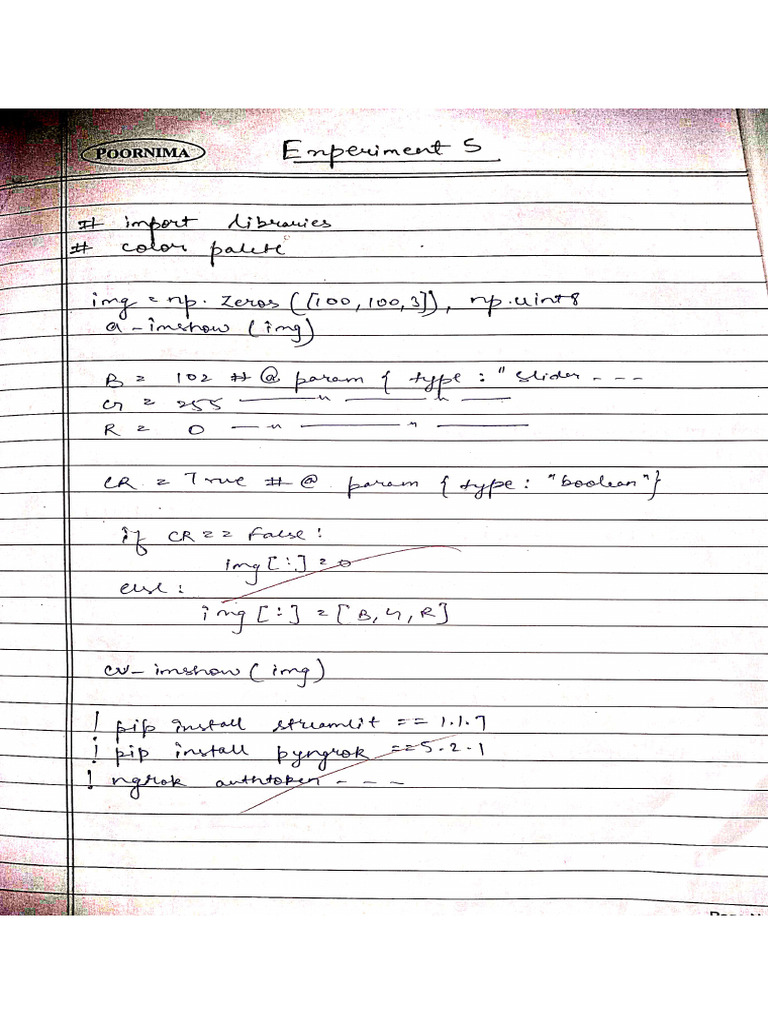 POORNIMA
Experiment 5
# import libraries
# color palete
img = np.zeros ([100,100,3]), np.uint8
a-imshow (img)
B = 102 # @ param { type : " slider - - -
G = 255 —— " —— " ——
R = 0 —— " —— " ——
CR = True # @ param { type : "boolean"}
if CR == False :
img [:] = 0
else :
img [:] = [B, G, R]
cv-imshow ( img )
! pip install streamlit == 1.1.7
! pip install pyngrok == 5.2.1
! ngrok authtoken - - -